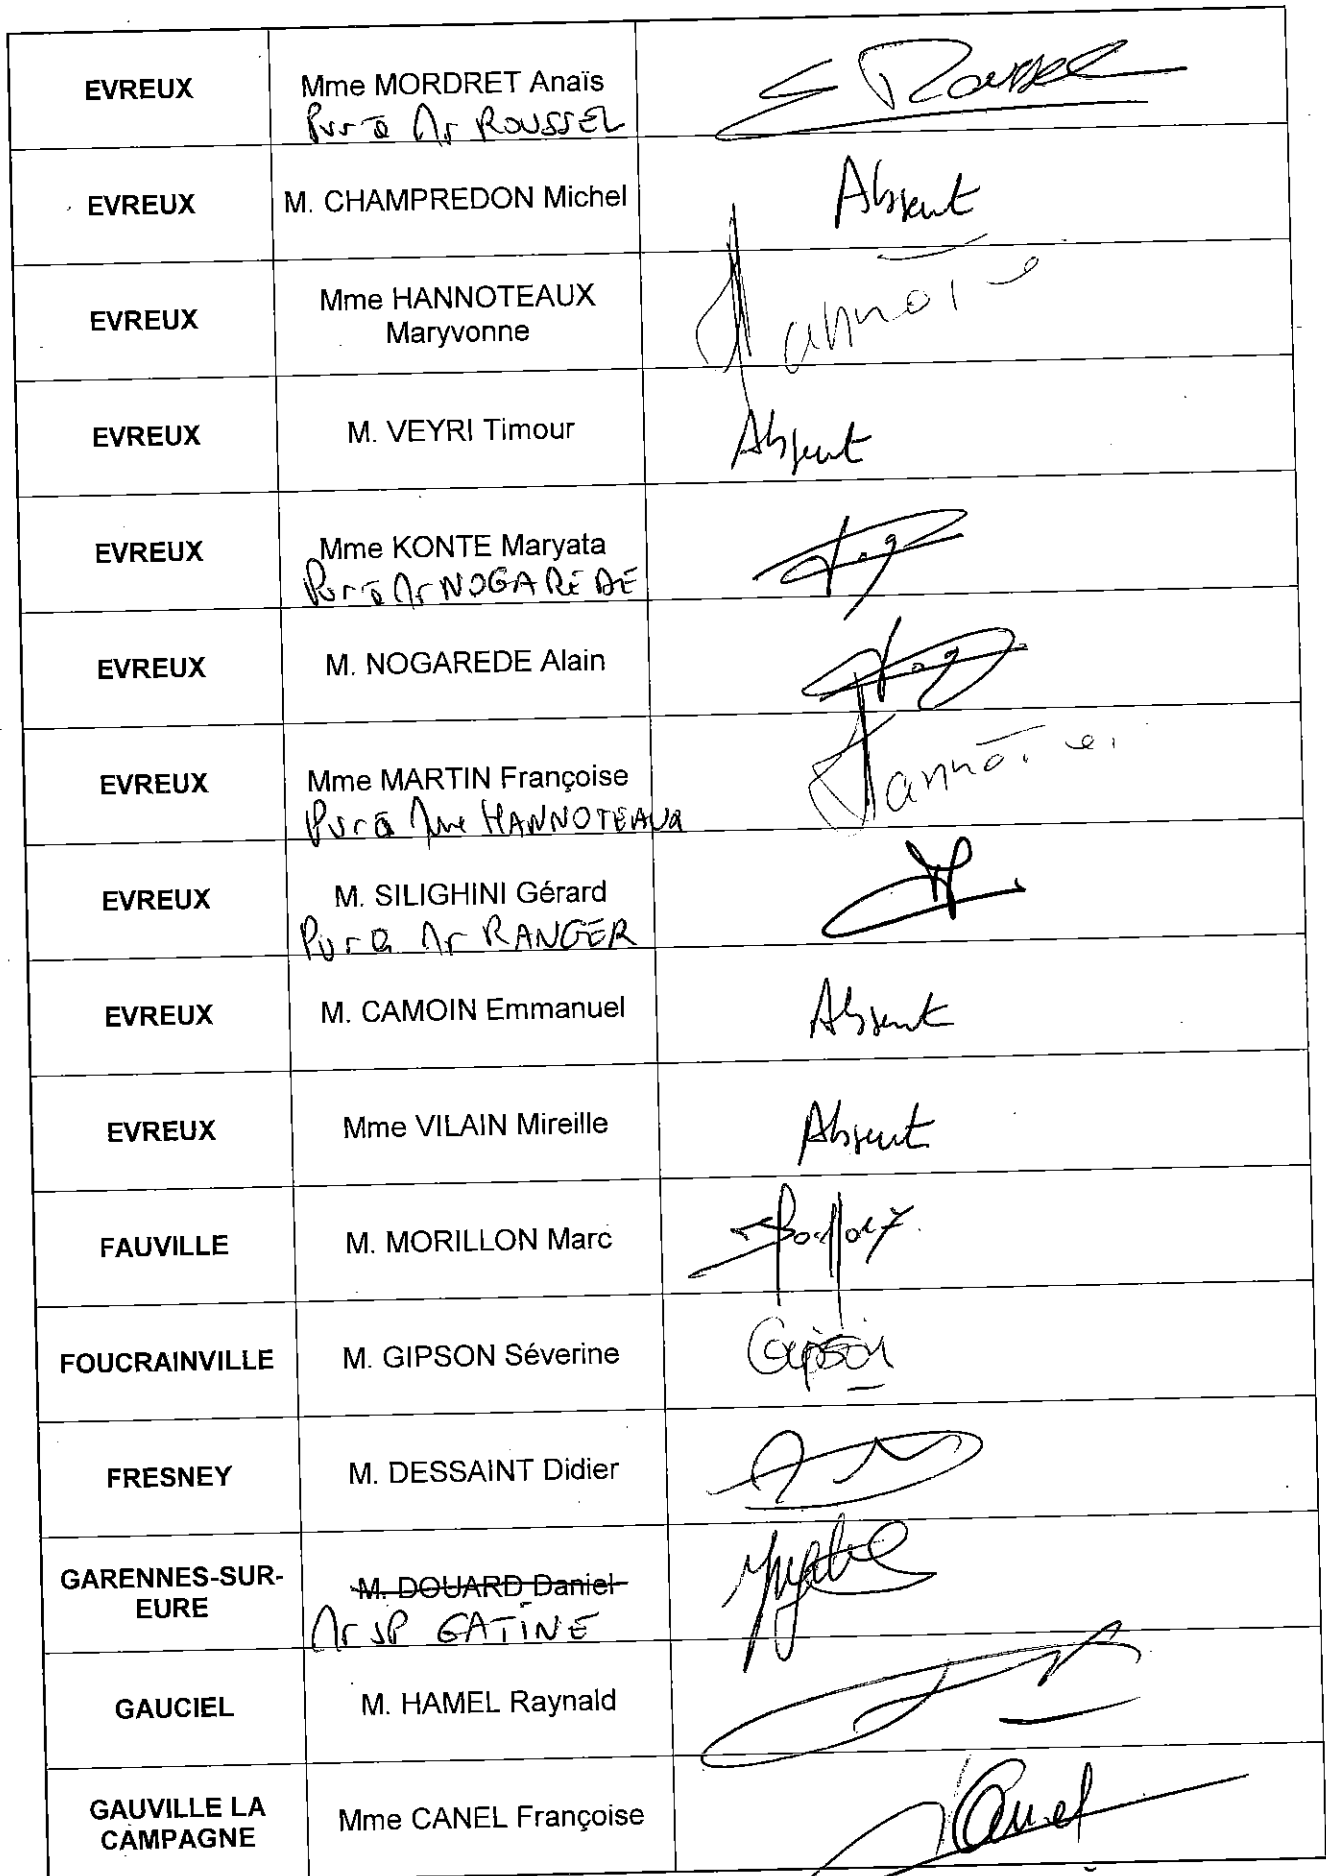 EVREUX
Mme MORDRET Anaïs
à Mr ROUSSEL
Roussel
EVREUX
M. CHAMPREDON Michel
Absent
EVREUX
Mme HANNOTEAUX
Maryvonne
EVREUX
M. VEYRI Timour
Absent
EVREUX
Mme KONTE Maryata
à Mr NOGAREDE
EVREUX
M. NOGAREDE Alain
EVREUX
Mme MARTIN Françoise
à Mme HANNOTEAUX
EVREUX
M. SILIGHINI Gérard
à Mr RANGER
EVREUX
M. CAMOIN Emmanuel
Absent
EVREUX
Mme VILAIN Mireille
Absent
FAUVILLE
M. MORILLON Marc
FOUCRAINVILLE
M. GIPSON Séverine
Gipson
FRESNEY
M. DESSAINT Didier
GARENNES-SUR-
EURE
M. DOUARD Daniel
Mr JP GATINE
GAUCIEL
M. HAMEL Raynald
GAUVILLE LA
CAMPAGNE
Mme CANEL Françoise
Canel